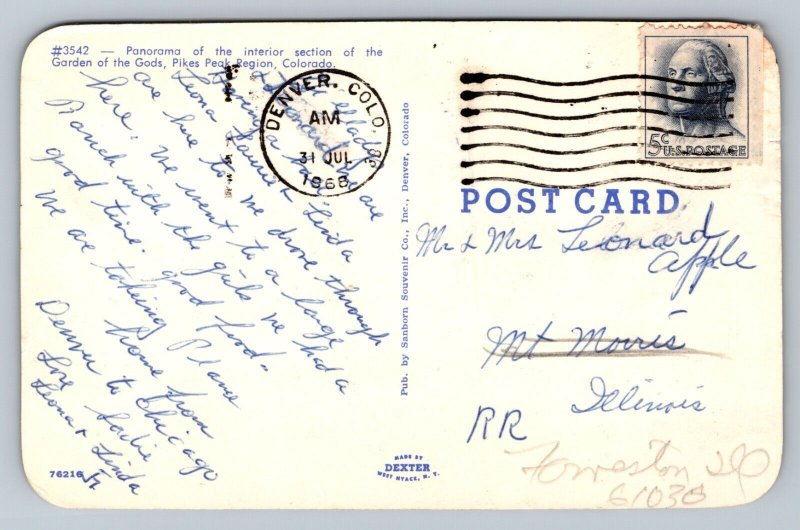 #3542 — Panorama of the interior section of the
Garden of the Gods, Pikes Peak Region, Colorado.
Leonard
we are
having a
are Leona Bonnie & Linda
here to. We drove through
here. We went to a large
Ranch with the girls we had a
good time. good food.
We are taking Plane
home from
Denver to Chicago
Love Sadie
Leona & Linda
76216
Pub. by Sanborn Souvenir Co., Inc., Denver, Colorado
MADE BY
DEXTER
WEST NYACK, N. Y.
DENVER, COLO.
AM
31 JUL
1968
5c U.S. POSTAGE
POST CARD
Mr & Mrs Leonard
Apple
Mt Morris
Illinois
RR
Forreston Ill
61030